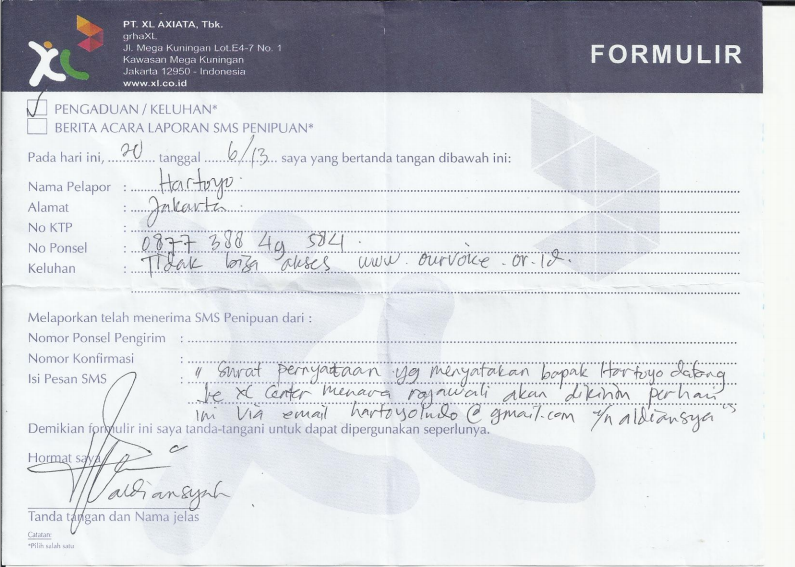 PT. XL AXIATA, Tbk.
grhaXL
Jl. Mega Kuningan Lot.E4-7 No. 1
Kawasan Mega Kuningan
Jakarta 12950 - Indonesia
www.xl.co.id
xl
FORMULIR
PENGADUAN / KELUHAN*
BERITA ACARA LAPORAN SMS PENIPUAN*
Pada hari ini, 20 tanggal 6/13 saya yang bertanda tangan dibawah ini:
Nama Pelapor : Hartoyo
Alamat : Jakarta
No KTP :
No Ponsel : 0877 388 49 584
Keluhan : Tidak biza akses www.ourvoice.or.id.
Melaporkan telah menerima SMS Penipuan dari :
Nomor Ponsel Pengirim :
Nomor Konfirmasi :
Isi Pesan SMS : " Surat pernyataan yg menyatakan bapak Hartoyo datang
ke XL Center menara rajawali akan dikirim perhari
ini via email hartoyomdo@gmail.com y/n aldiansya"
Demikian formulir ini saya tanda-tangani untuk dapat dipergunakan seperlunya.
Hormat saya
aldiansyah
Tanda tangan dan Nama jelas
Catatan:
*Pilih salah satu